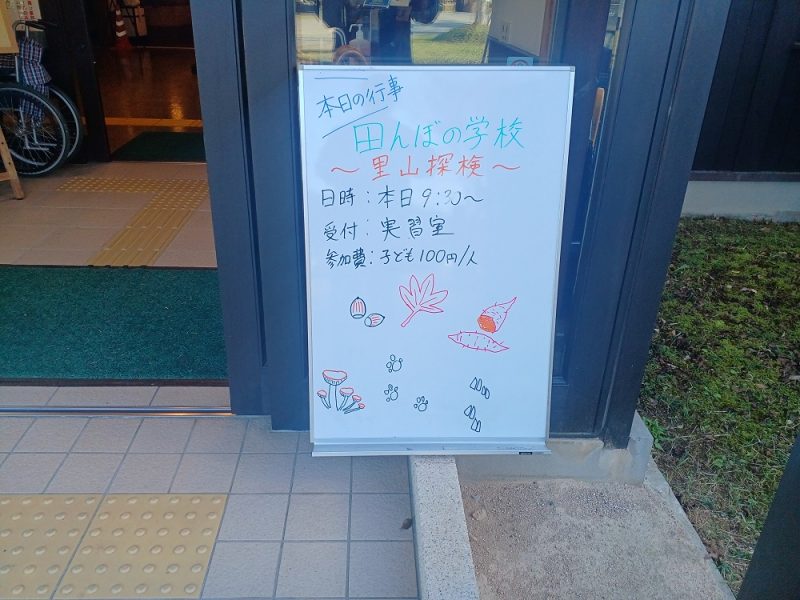 本日の行事
田んぼの学校
～里山探検～
日時：本日9:30～
受付：実習室
参加費：子ども100円/人